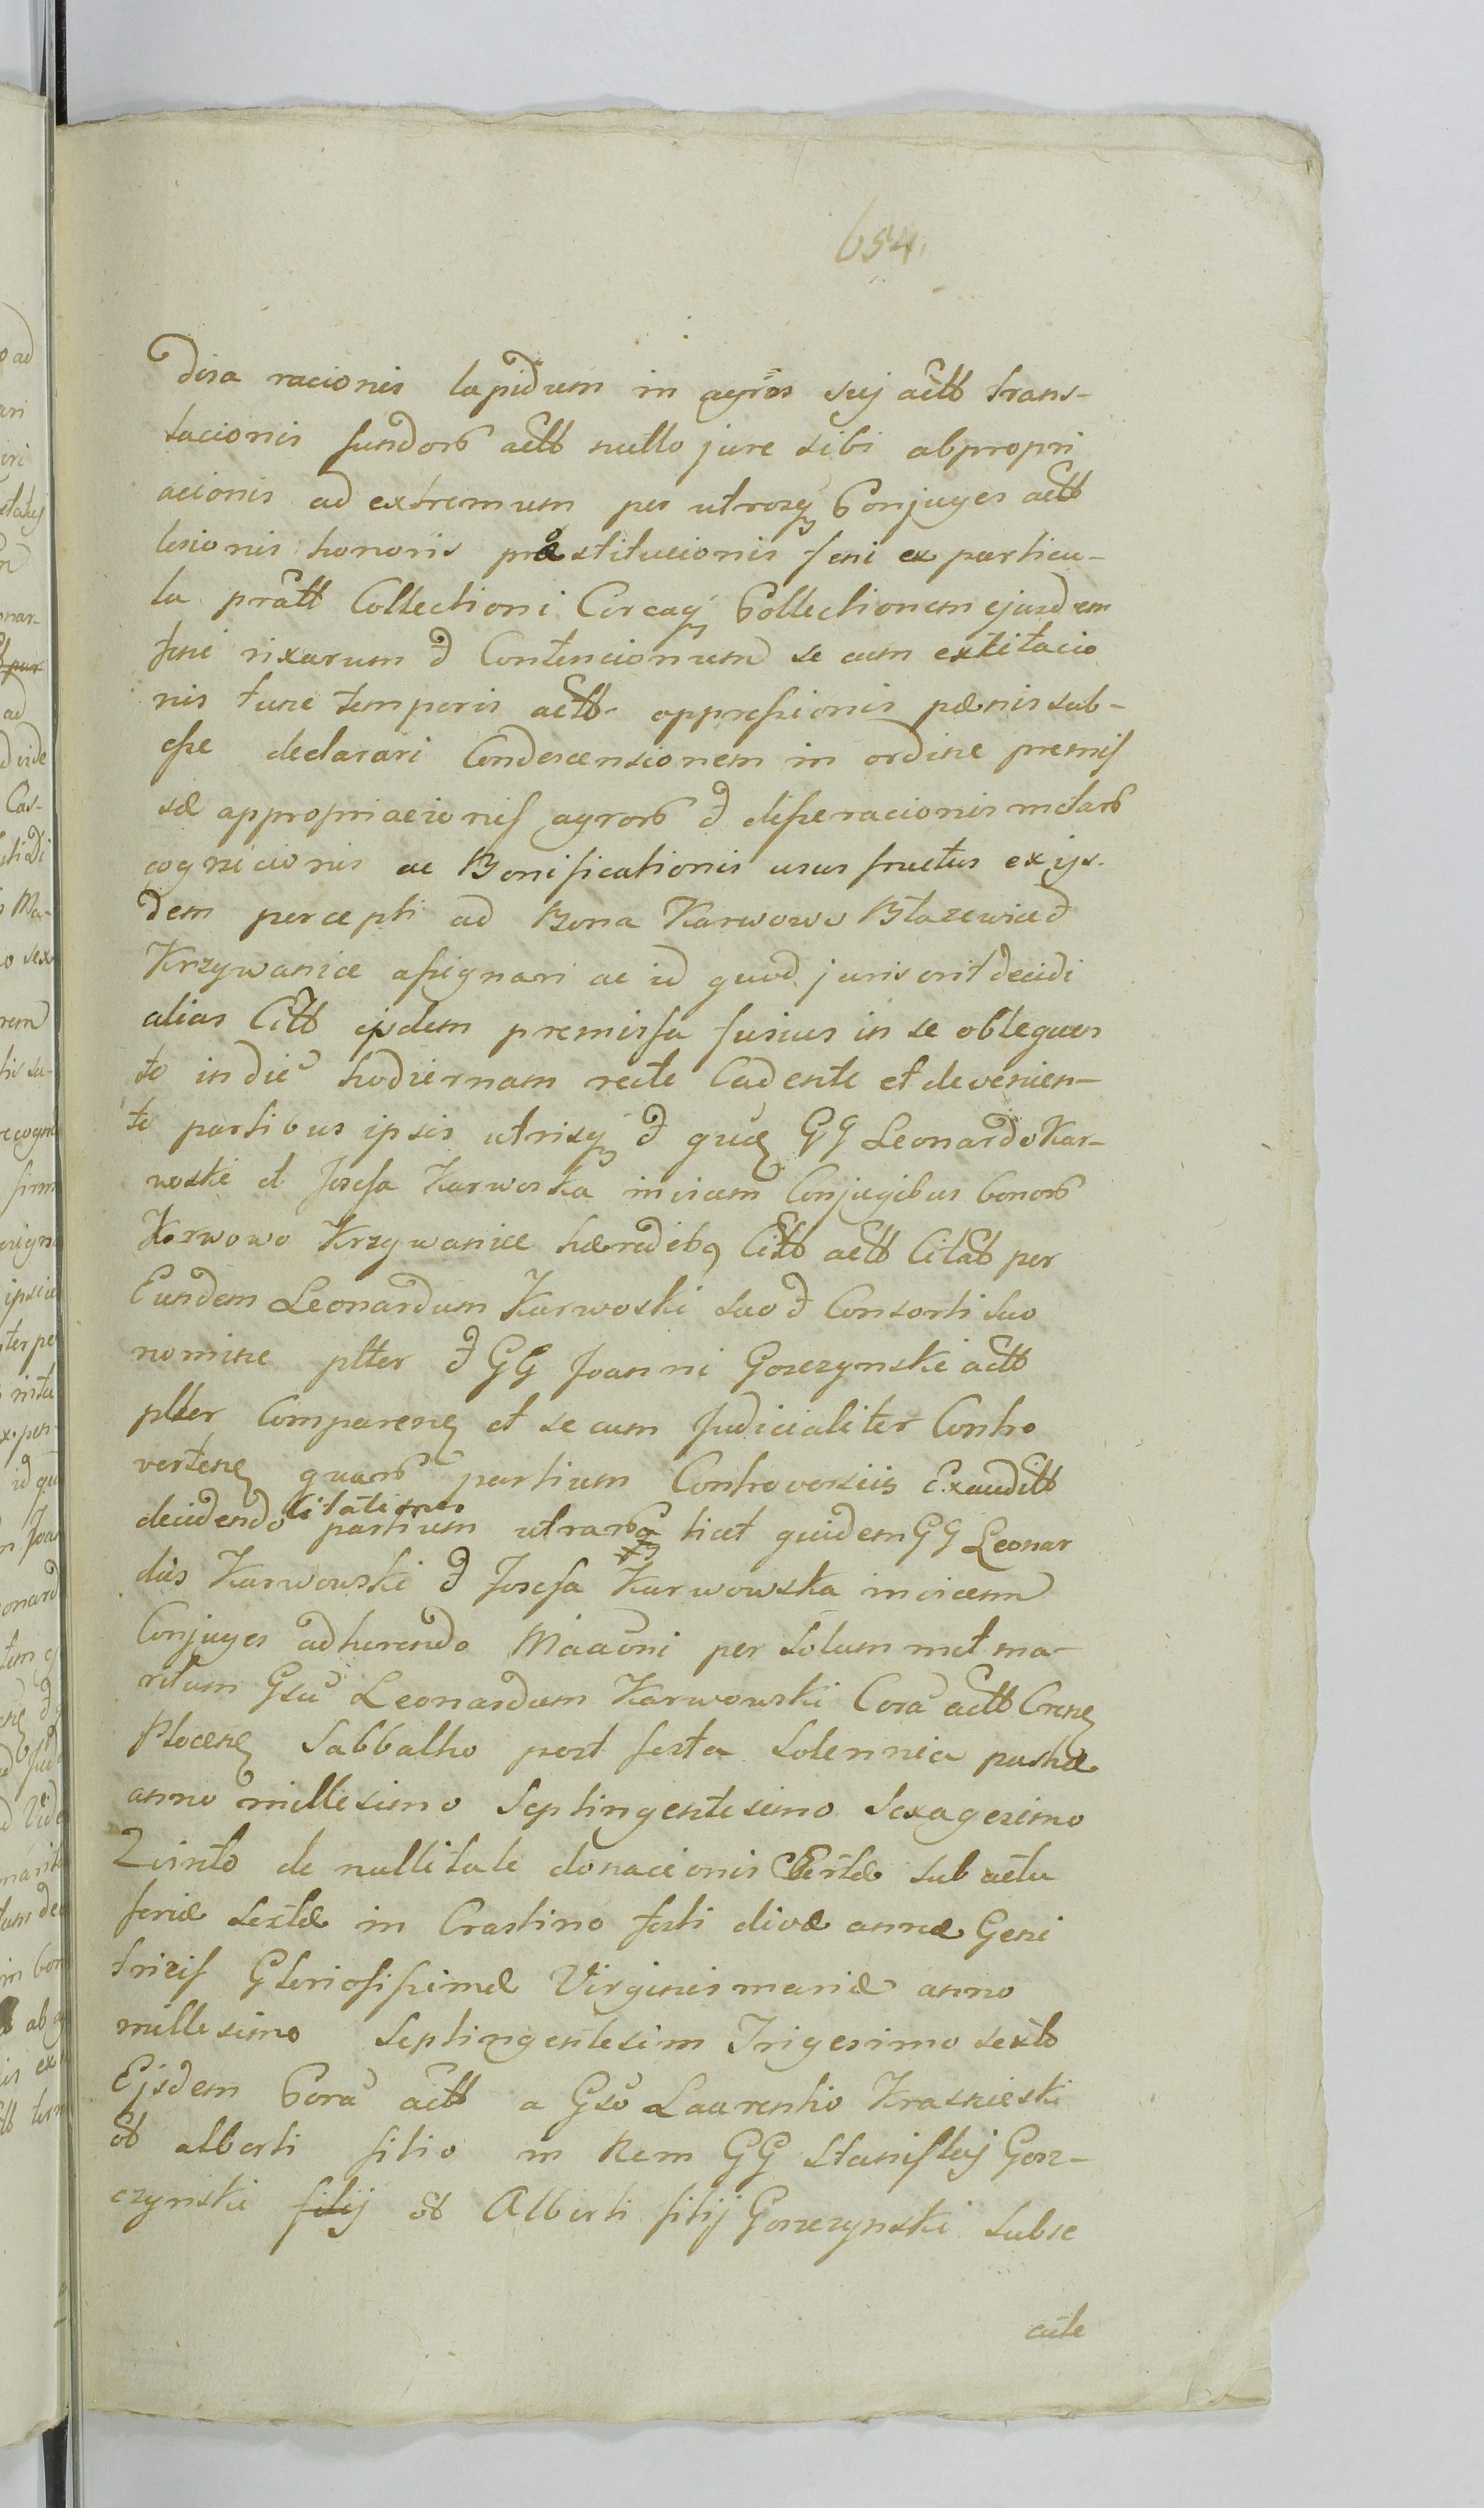 654.
disa racionis lapidum in agros suj actt trans-
tacionis fundorb actt nullo jure sibi abpropri
acionis ad extremum per utrosq Conjuges actt
lesionis honoris præstitucionis feni ex particu-
la prātt Collectioni Circaq Collectionem ejusdem
feni rixarum & Contencionum se cum extitacio
nis tunc temporis actt oppressionis pænis sub-
esse declarari Condescensionem in ordine premis
sæ appropriacionis agrorb & disperacionis metarb
cognicionis ac Bonificationis usus fructus ex ijs-
dem percepti ad Bona Karwowo Błazewice &
Krzywanice assignari ac id quod juris erit decidi
alias Citt ejdem premissa fusius in se obloquen
te in die hodiernam recte Cadente et devenien-
te partibus ipsis utrisq & quę GG Leonardo Kar-
woski et Josefa Karwoska invicem Conjugibus bonorb
Karwowo Krzywanice hæredibq Citt actt Citatt per
Eundem Leonardum Karwoski suo & Consorti suo
nomine plter & GG Joanni Gorczynski actt
plter Comparenę et se cum Judicialiter Contro
vertenę quarb partium Controversiis Exauditt
decidendo Citationes partium utrarbq licet quidem GG Leonar
dus Karwowski & Josefa Karwowska invicem
Conjuges adherendo Maāoni per solum met ma-
ritum Gsu Leonardum Karwowski Cora actt Crenę
Plocenę Sabbatho post festa Solennia paschæ
anno millesimo Septingentesimo Sexagesimo
Zuinto de nullitate donacionis Certæ sub actu
feriæ sextæ in Crastino festi divæ annæ Geni
tricis Gloriosissimæ Virginis mariæ anno
millesimo Septingentesim Trigesimo sexto
Ejsdem Cora actt a Gso Laurentio Krasnieski
ot alberti filio in Rem GG Stanislaj Gor-
czynski filij ot Alberti filij Gorczynski subse
cute